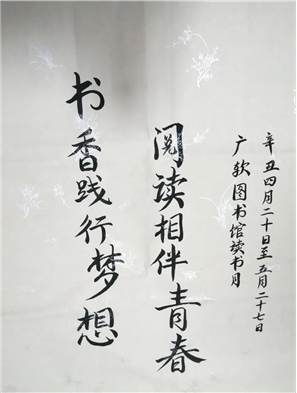 辛丑四月二十日至五月二十七日
广软图书馆读书月
阅读相伴青春
书香践行梦想